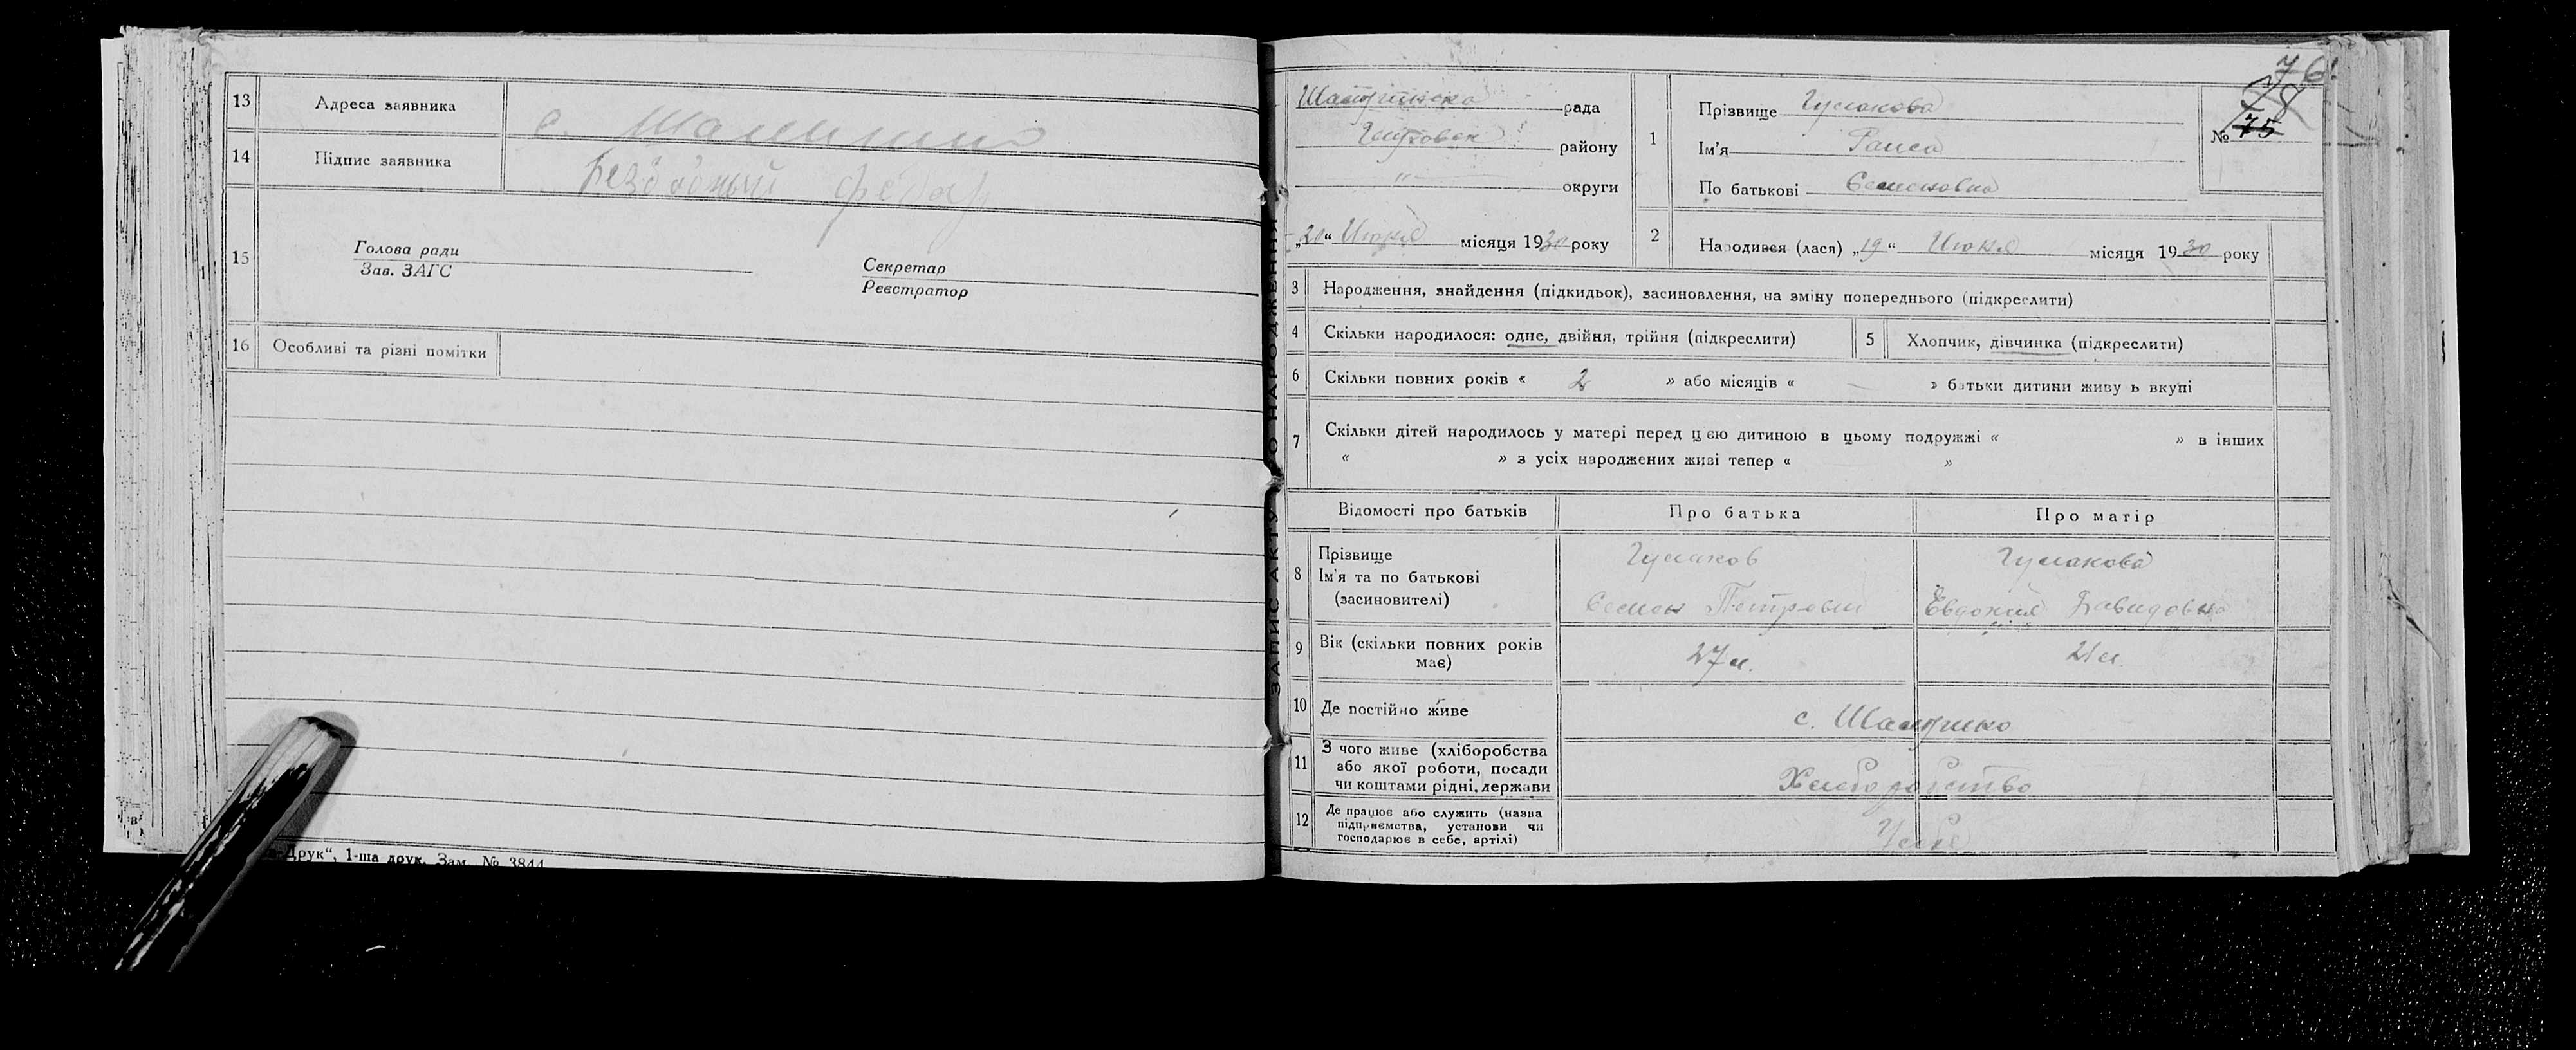 13 Адреса заявника с.
14 Підпис заявника
15 Голова ради
Зав. ЗАГС
Секретар
Реєстратор
16 Особливі та різні помітки
Друк", 1-ша друк. Зам. № 3844
ЗАПИС АКТУ ПРО НАРОДЖЕННЯ
76
рада
району
" округи
„20“ Июня місяця 1930 року
1 Прізвище Гумакова
Ім'я Раиса
По батькові Семеновна
№ 75
2 Народився (лася) „19“ Июня місяця 1930 року
3 Народження, знайдення (підкидьок), засиновлення, на зміну попереднього (підкреслити)
4 Скільки народилося: одне, двійня, трійня (підкреслити)
5 Хлопчик, дівчинка (підкреслити)
6 Скільки повних років « 2 » або місяців « — » батьки дитини живу ь вкупі
7 Скільки дітей народилось у матері перед цією дитиною в цьому подружжі « » в інших
« » з усіх народжених живі тепер « »
Відомості про батьків Про батька Про матір
8 Прізвище
Ім'я та по батькові
(засиновителі)
Гумаков
Семен Петрович
Гумакова
Евдокия Давидовна
9 Вік (скільки повних років
має)
27 л. 21 л.
10 Де постійно живе с.
11 З чого живе (хліборобства
або якої роботи, посади
чи коштами рідні, держави
Хлеборобство
12 Де працює або служить (назва
підприємства, установи чи
господарює в себе, артілі)